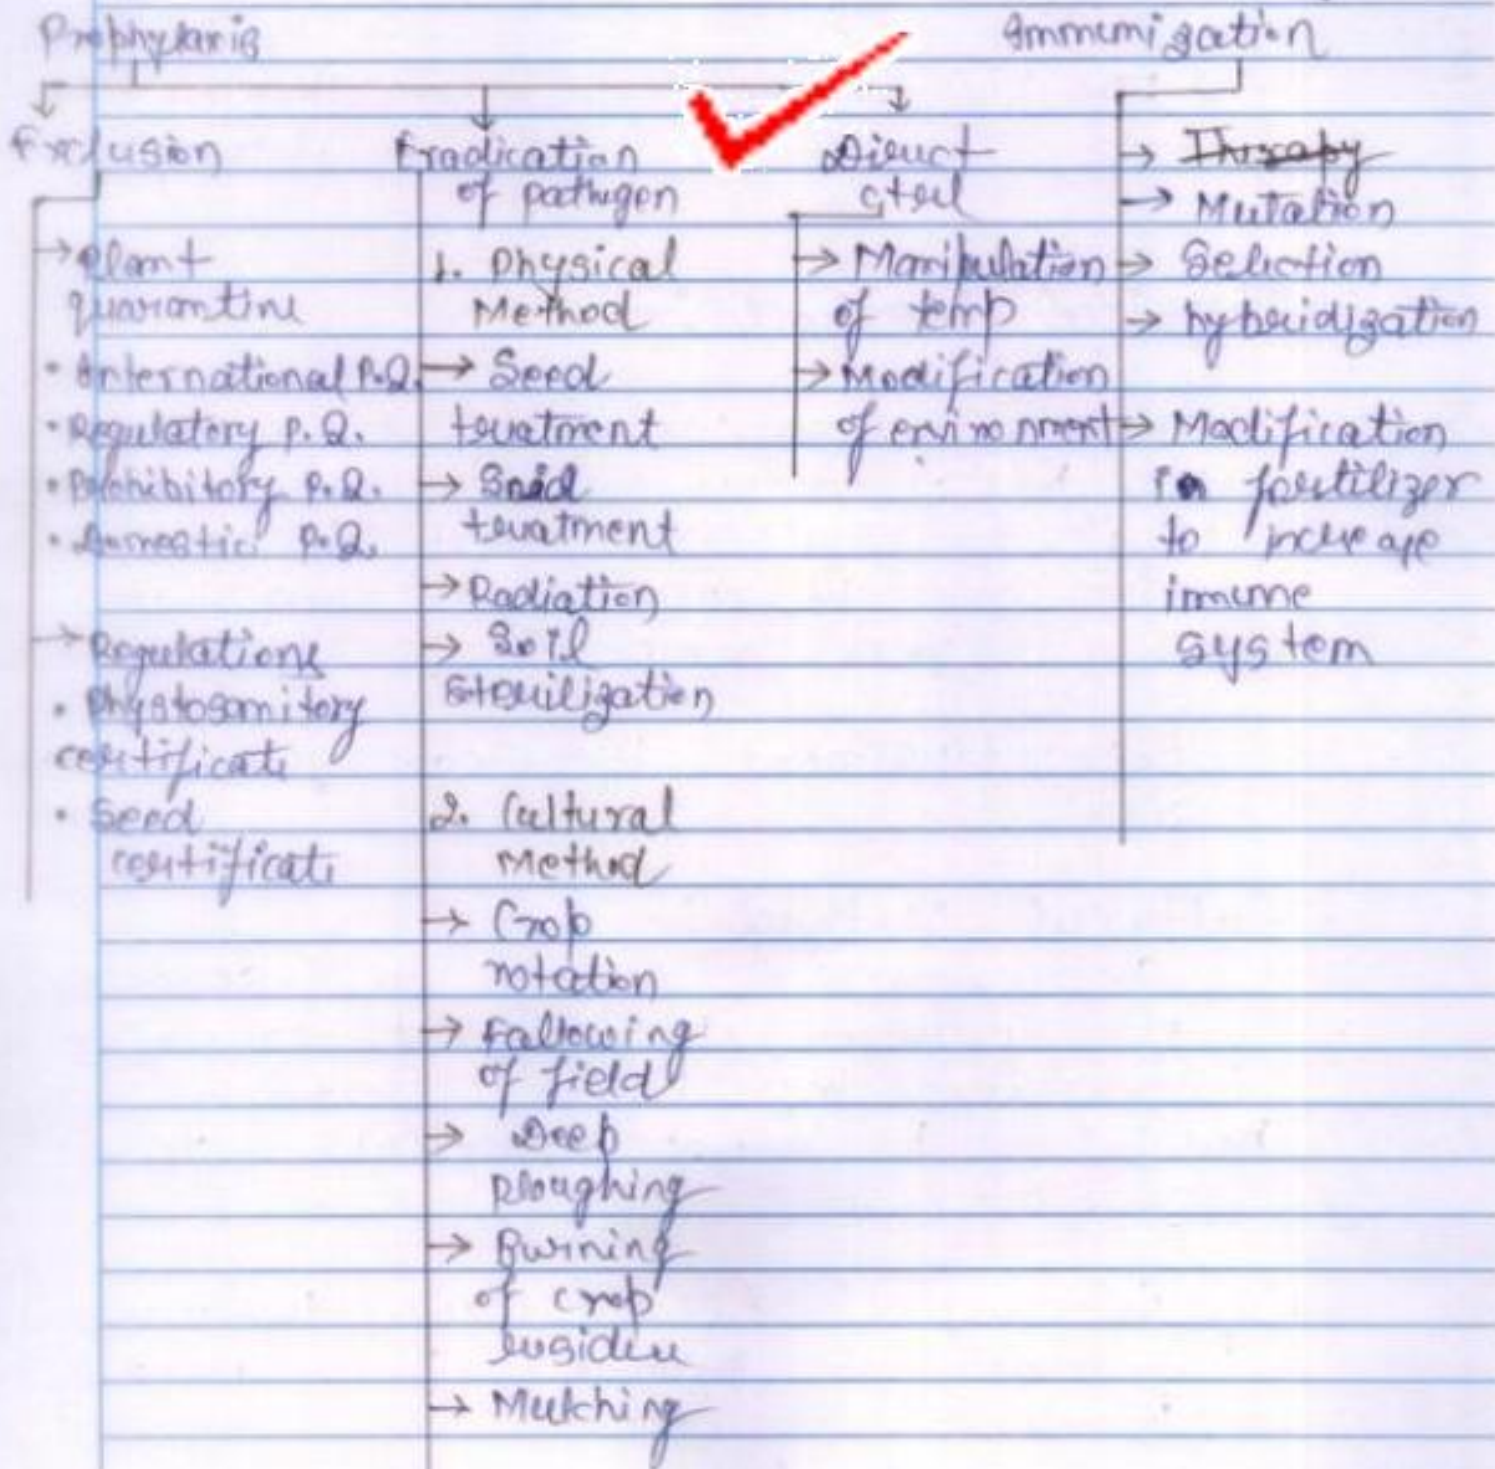 Prophylaxis
Immunization
Exclusion
→ Plant
quarantine
• International P.Q.
• Regulatory P.Q.
• Prohibitory P.Q.
• Domestic P.Q.
→ Regulations
• Phystosanitory
certificate
• Seed
certificate
Eradication
of pathogen
1. Physical
Method
→ Seed
treatment
→ Soid
treatment
→ Radiation
→ Soil
Sterilization
2. Cultural
Method
→ Crop
rotation
→ Fallowing
of field
→ Deep
Ploughing
→ Burning
of crop
residue
→ Mulching
Direct
→ Manipulation
of temp
→ Modification
of environment
→ Therapy
→ Mutation
→ Selection
→ hybridization
→ Modification
in fertilizer
to increase
immune
system